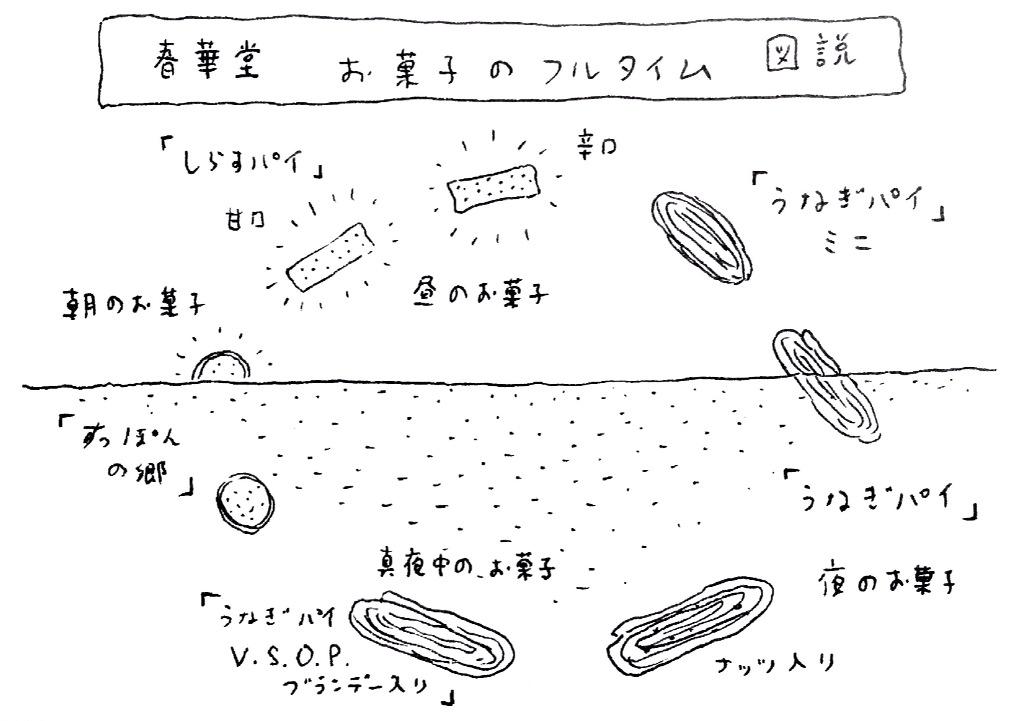 春華堂 お菓子のフルタイム 図説
「しらすパイ」
辛口
甘口
「うなぎパイ」
ミニ
朝のお菓子
昼のお菓子
「すっぽん
の郷」
「うなぎパイ」
夜のお菓子
真夜中のお菓子
「うなぎパイ
V.S.O.P.
ブランデー入り」
ナッツ入り